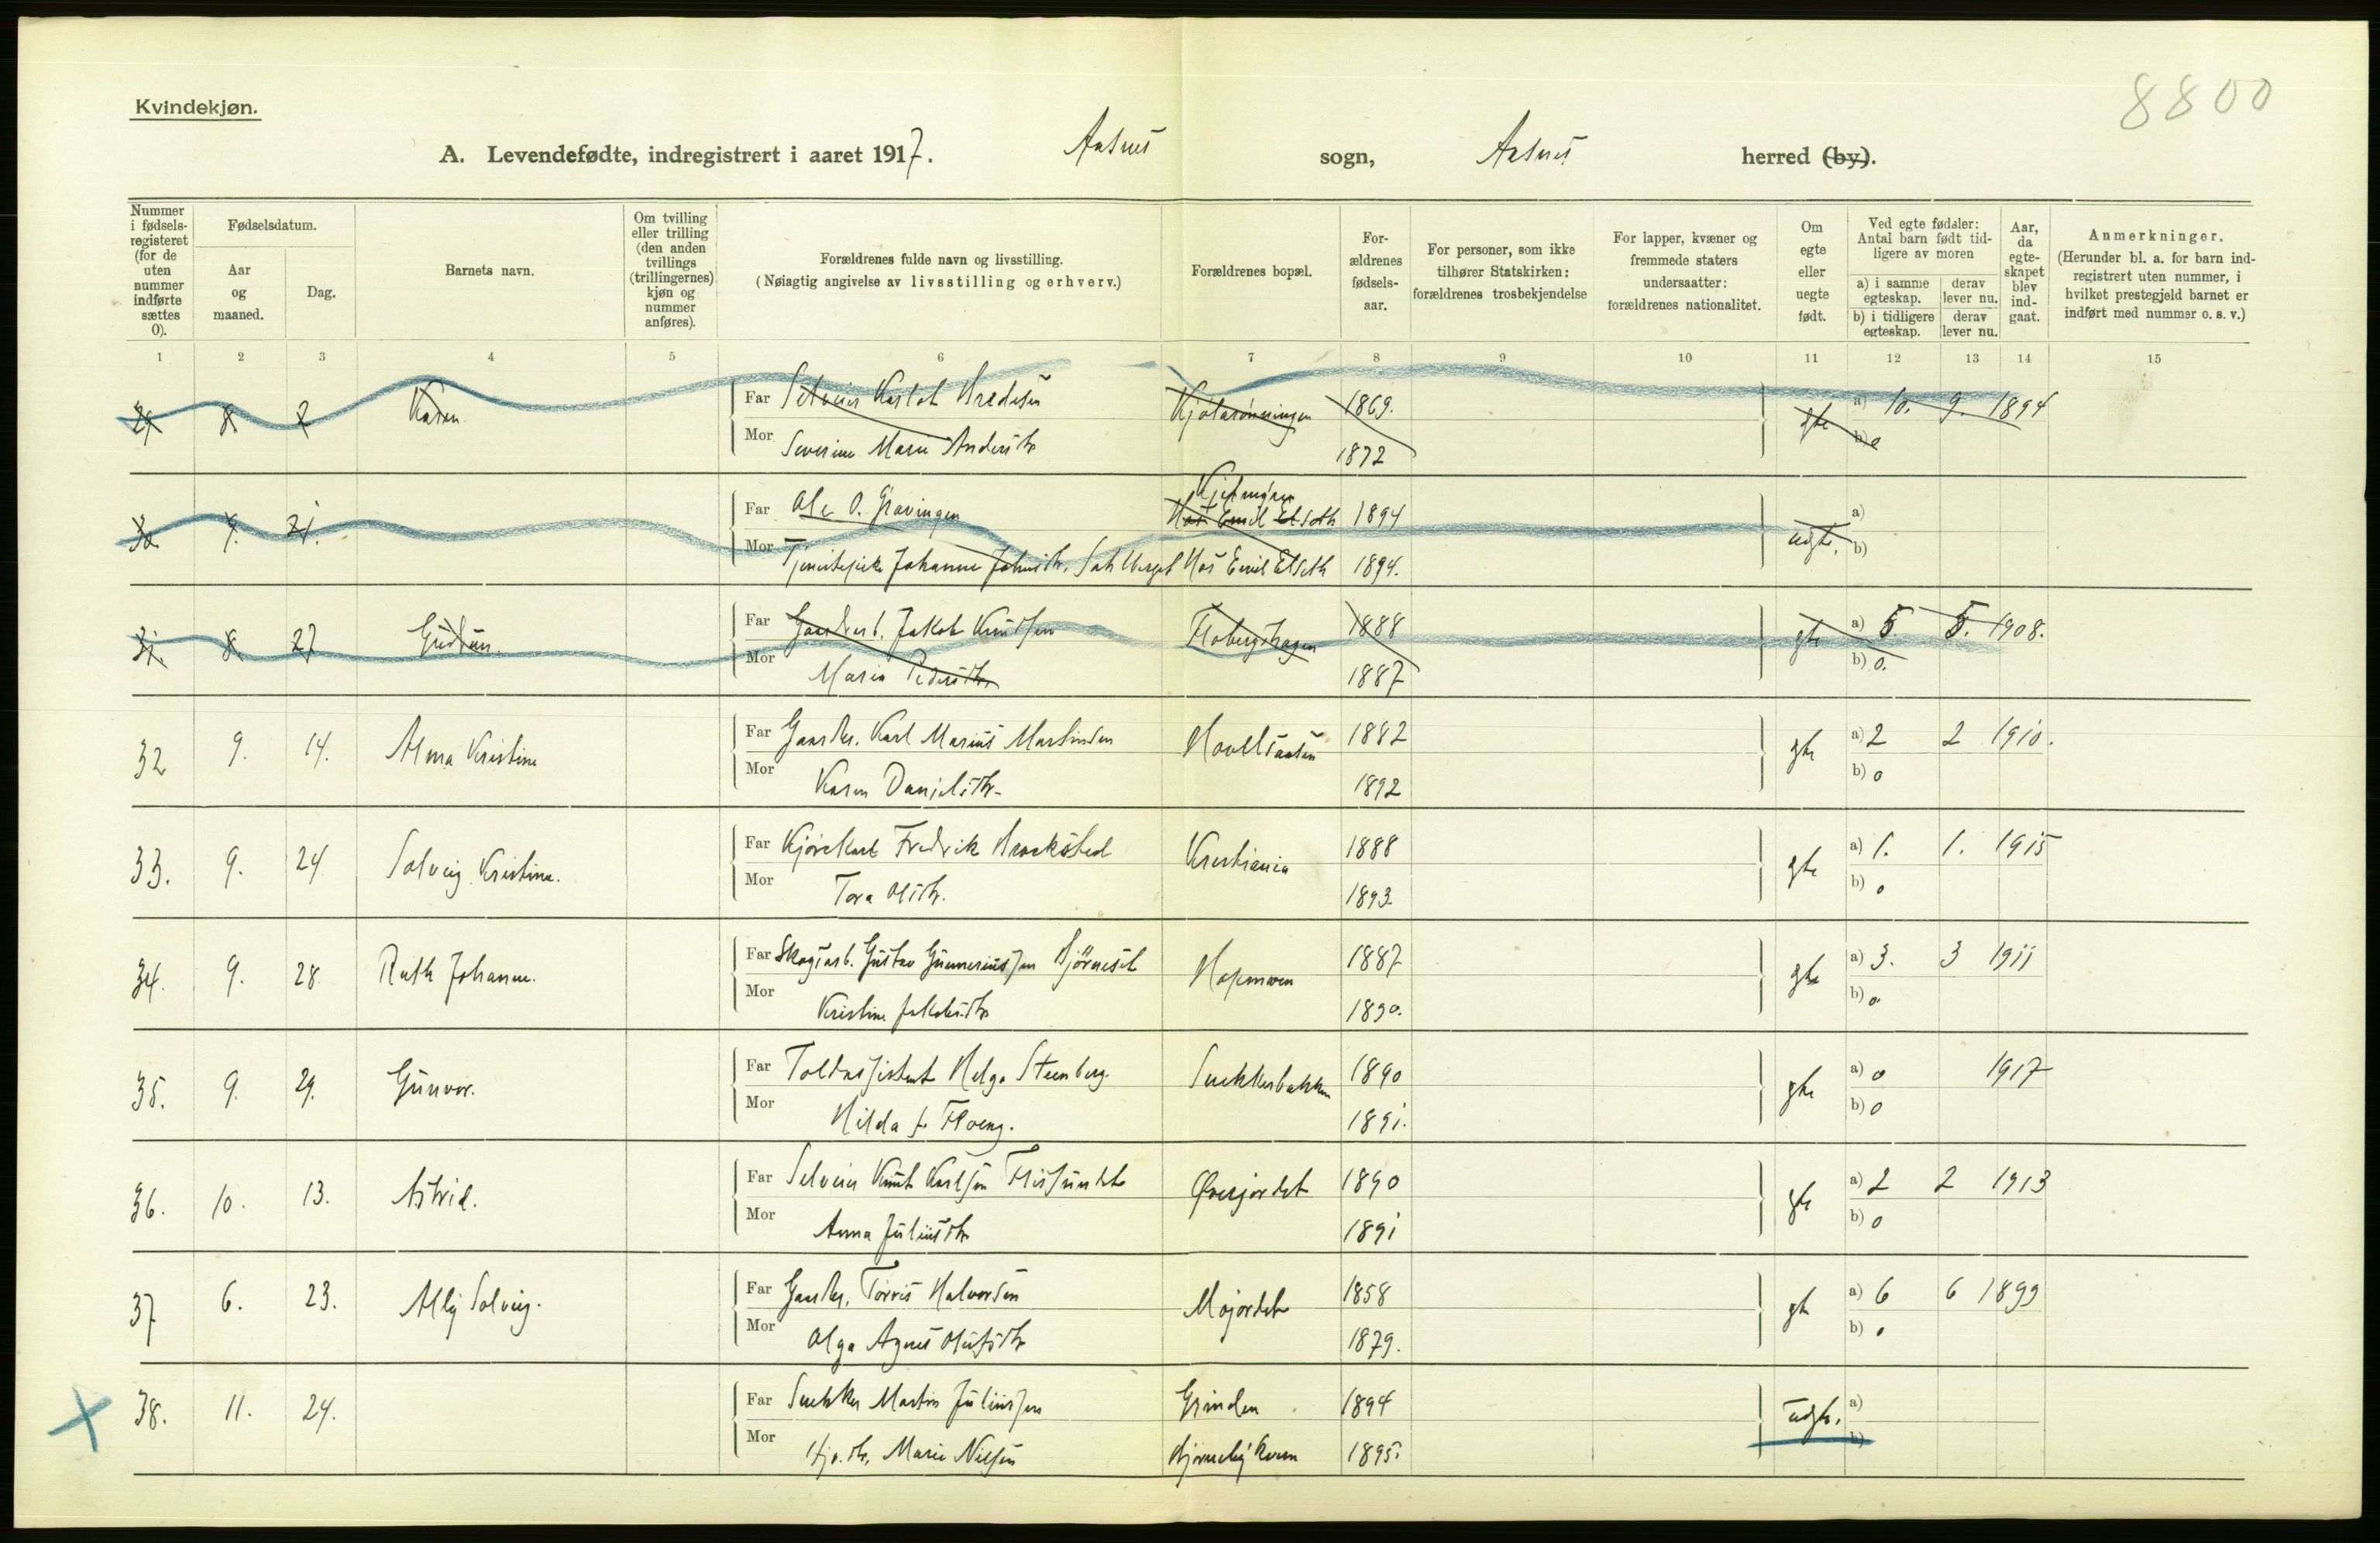 8800
Kvindekjøn.
A. Levendefødte, indregistrert i aaret 1917. Aasnes sogn, Aasnes herred (by).
Nummer i fødselsregisteret (for de uten nummer indførte sættes 0).
Fødselsdatum.
Aar og maaned.
Dag.
Barnets navn.
Om tvilling eller trilling (den anden tvillings (trillingernes) kjøn og nummer anføres).
Forældrenes fulde navn og livsstilling.
(Nøiagtig angivelse av livsstilling og erhverv.)
Forældrenes bopæl.
Forældrenes fødselsaar.
For personer, som ikke tilhører Statskirken: forældrenes trosbekjendelse
For lapper, kvæner og fremmede staters undersaatter: forældrenes nationalitet.
Om egte eller uegte født.
Ved egte fødsler: Antal barn født tidligere av moren
a) i samme egteskap.
derav lever nu.
b) i tidligere egteskap.
derav lever nu.
Aar, da egteskapet blev indgaat.
Anmerkninger.
(Herunder bl. a. for barn indregistrert uten nummer, i hvilket prestegjeld barnet er indført med nummer o. s. v.)
1 2 3 4 5 6 7 8 9 10 11 12 13 14 15
29 8. 2 Karen Far Selveier 1869. gte a) 10. 9. 1894
Mor Severine Marie Andersdtr 1872 b) 0
30. 9. 21. Far Ole O. Gravingen Hos Emil Elseth 1894 uegte. a)
Mor Johanne Johnsdtr. Hos Emil Elseth 1894. b)
31. 8. 27 Gudrun. Far Gaardarb. Jakob Knutsen Flobergshagen 1888 gte a) 5. 5. 1908.
Mor Maria Pedersdtr. 1887 b) 0.
32 9. 14. Alma Kristine Far Gaardbr. Karl Marius Martinsen 1882 gte a) 2 2 1910.
Mor Karen Danielsdtr. 1892 b) 0
33. 9. 24 Solveig Kristine. Far Fredrik Kristiania 1888 gte a) 1. 1. 1915
Mor Tora Olsdtr. 1893. b) 0
34. 9. 28 Ruth Johanne. Far Skogsarb. Gustav Gunneriussen Bjørneset 1887 gte a) 3. 3 1911
Mor Kristine Jakobsdtr 1890. b) 0.
35. 9. 29. Gunvor. Far Toldassistent Helge Steenberg. Snekkerbakken 1890 gte a) 0 1917
Mor Hilda f. Floeng. 1891. b) 0
36. 10. 13. Astrid. Far Selveier Knut Karlsen Flissundet Øverjordet 1890 gte a) 2 2 1913
Mor Anna Juliusdtr 1891 b) 0
37 6. 23. Ally Solveig. Far Gaardbr. Torris Halvorsen Mojordet 1858 gte a) 6 6 1899
Mor Olga Agnes Olufsdtr 1879. b) 0
38. 11. 24. Far Snekker Martin Juliussen Grinden 1894 uegte. a)
Mor Marie Nilsen 1895. b)